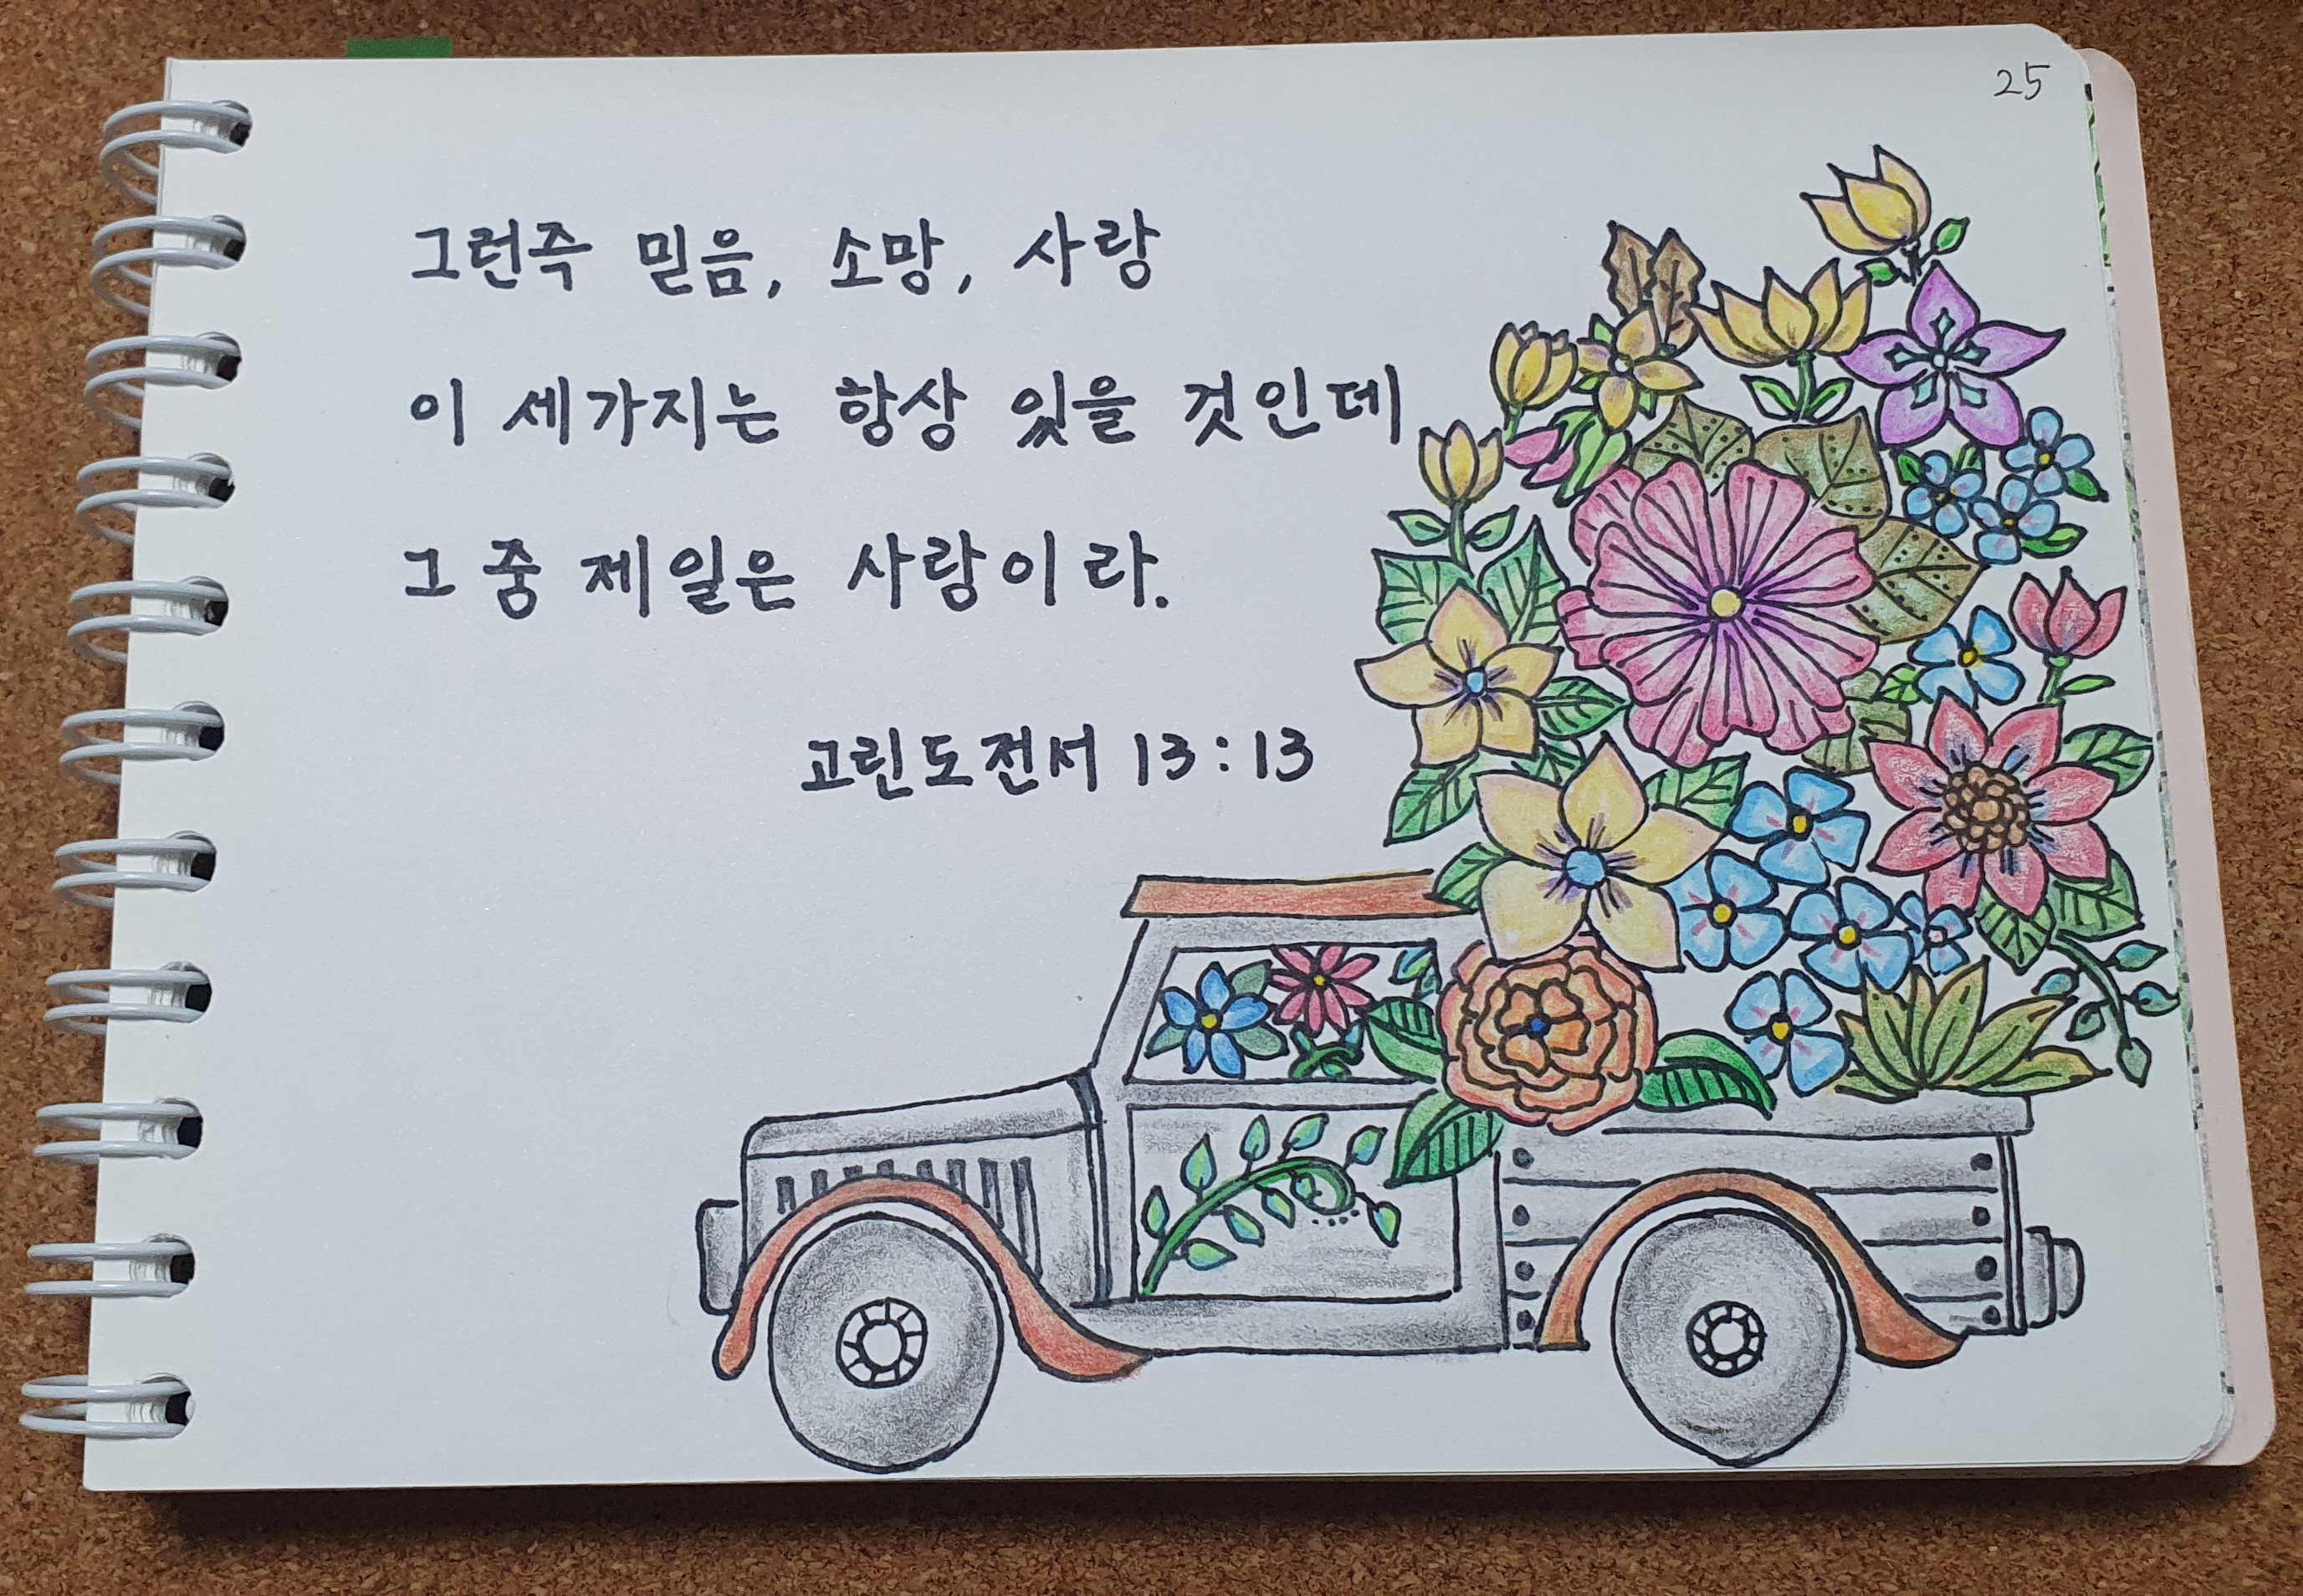 25
그런즉 믿음, 소망, 사랑
이 세가지는 항상 있을 것인데
그 중 제일은 사랑이라.
고린도전서 13:13